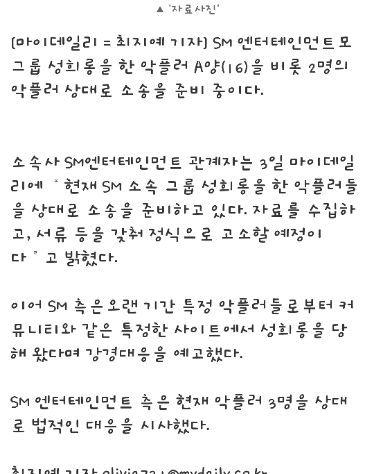 ▲ '자료사진'
[마이데일리 = 최지예 기자] SM 엔터테인먼트 모
그룹 성희롱을 한 악플러 A양(16)을 비롯 2명의
악플러 상대로 소송을 준비 중이다.
소속사 SM엔터테인먼트 관계자는 3일 마이데일
리에 "현재 SM 소속 그룹 성희롱을 한 악플러들
을 상대로 소송을 준비하고 있다. 자료를 수집하
고, 서류 등을 갖춰 정식으로 고소할 예정이
다"고 밝혔다.
이어 SM 측은 오랜 기간 특정 악플러들로부터 커
뮤니티와 같은 특정한 사이트에서 성희롱을 당
해 왔다며 강경대응을 예고했다.
SM 엔터테인먼트 측은 현재 악플러 3명을 상대
로 법적인 대응을 시사했다.